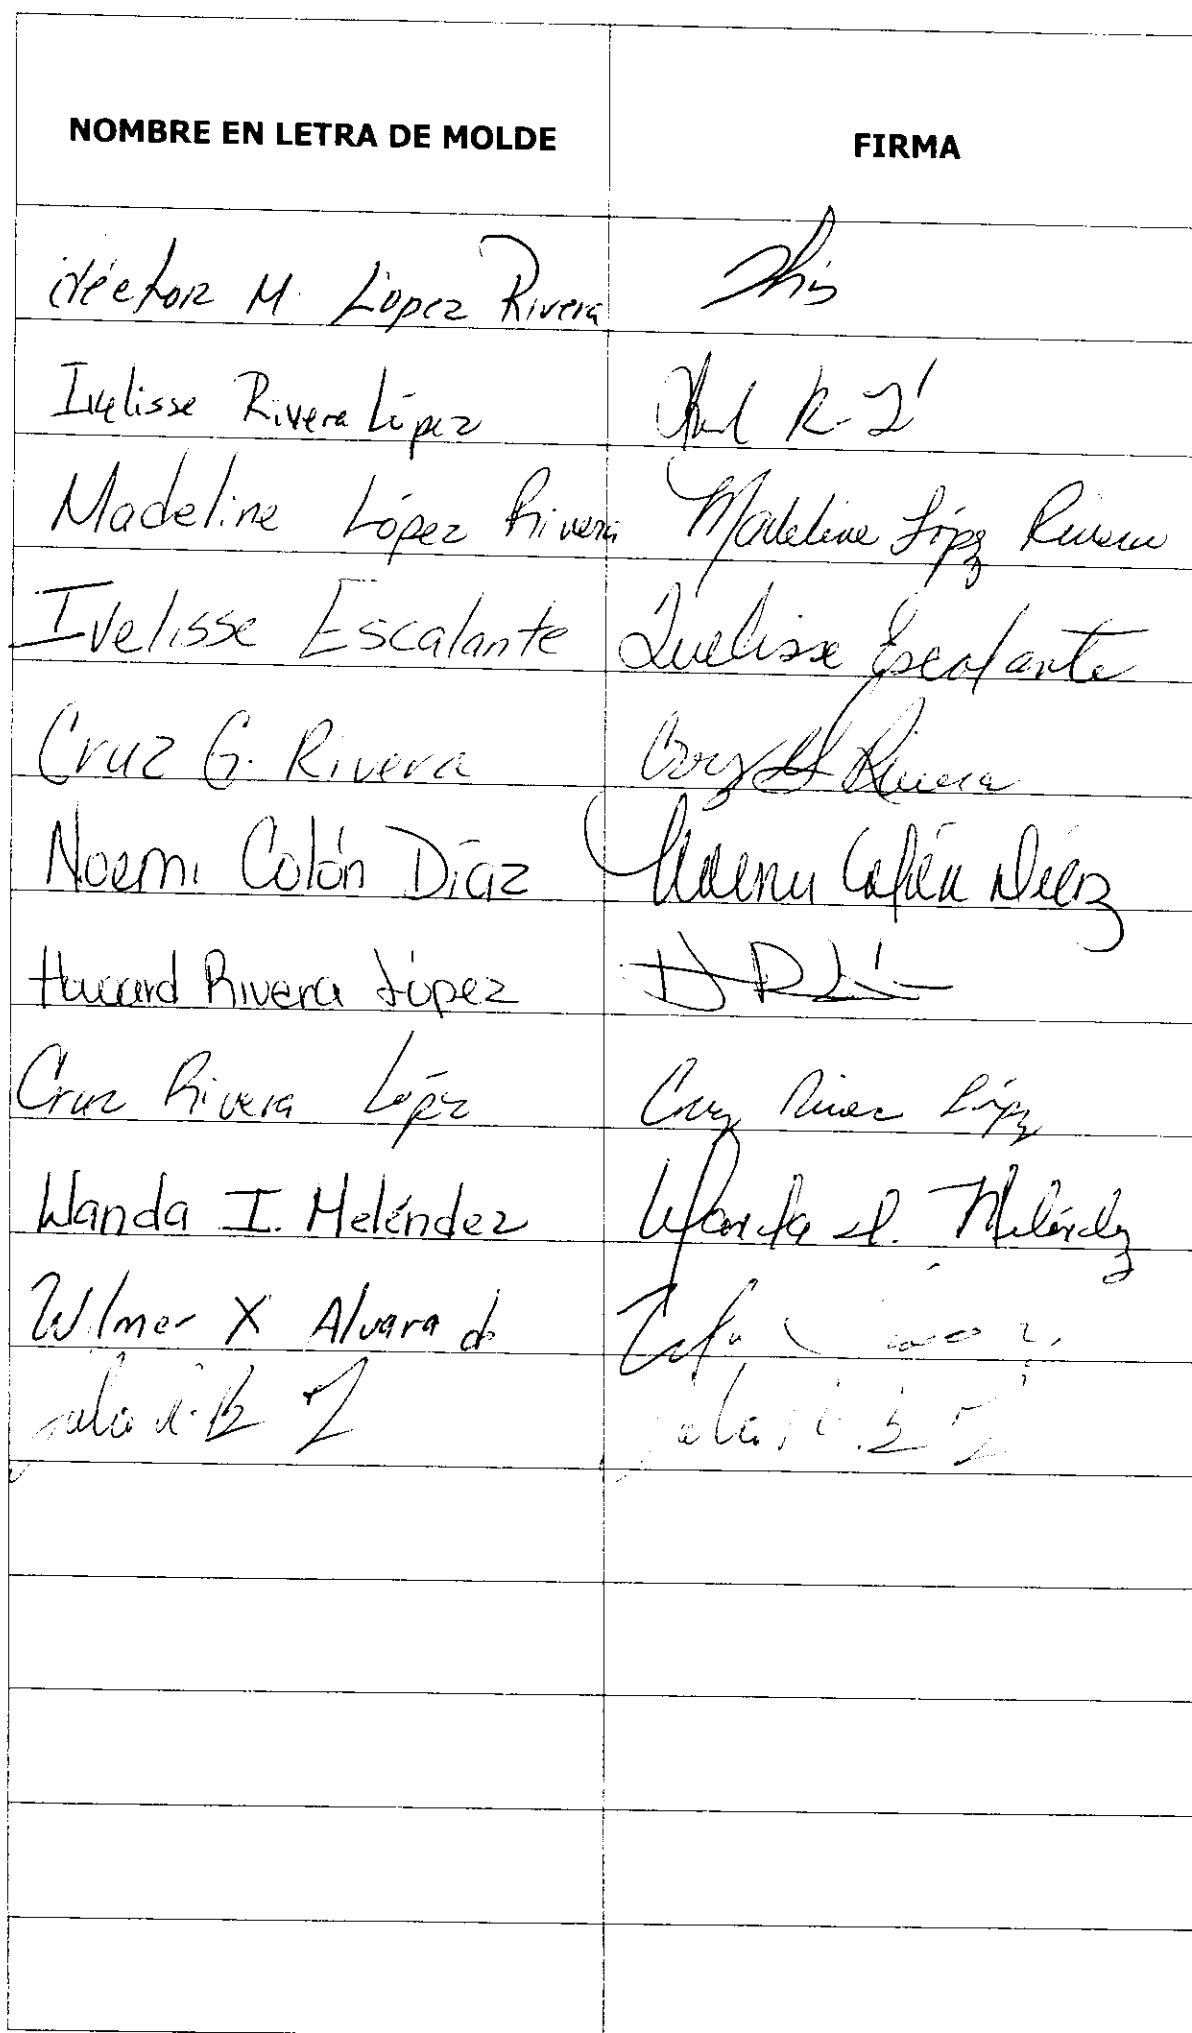 NOMBRE EN LETRA DE MOLDE FIRMA
Héctor M. López Rivera
Ivelisse Rivera López
Madeline López Rivera Madeline López Rivera
Ivelisse Escalante Ivelisse Escalante
Cruz G. Rivera Cruz G Rivera
Noemi Colón Díaz Noemi Colón Díaz
Howard Rivera López
Cruz Rivera López Cruz Rivera López
Wanda I. Meléndez Wanda I. Meléndez
Wilmer X Alvarado